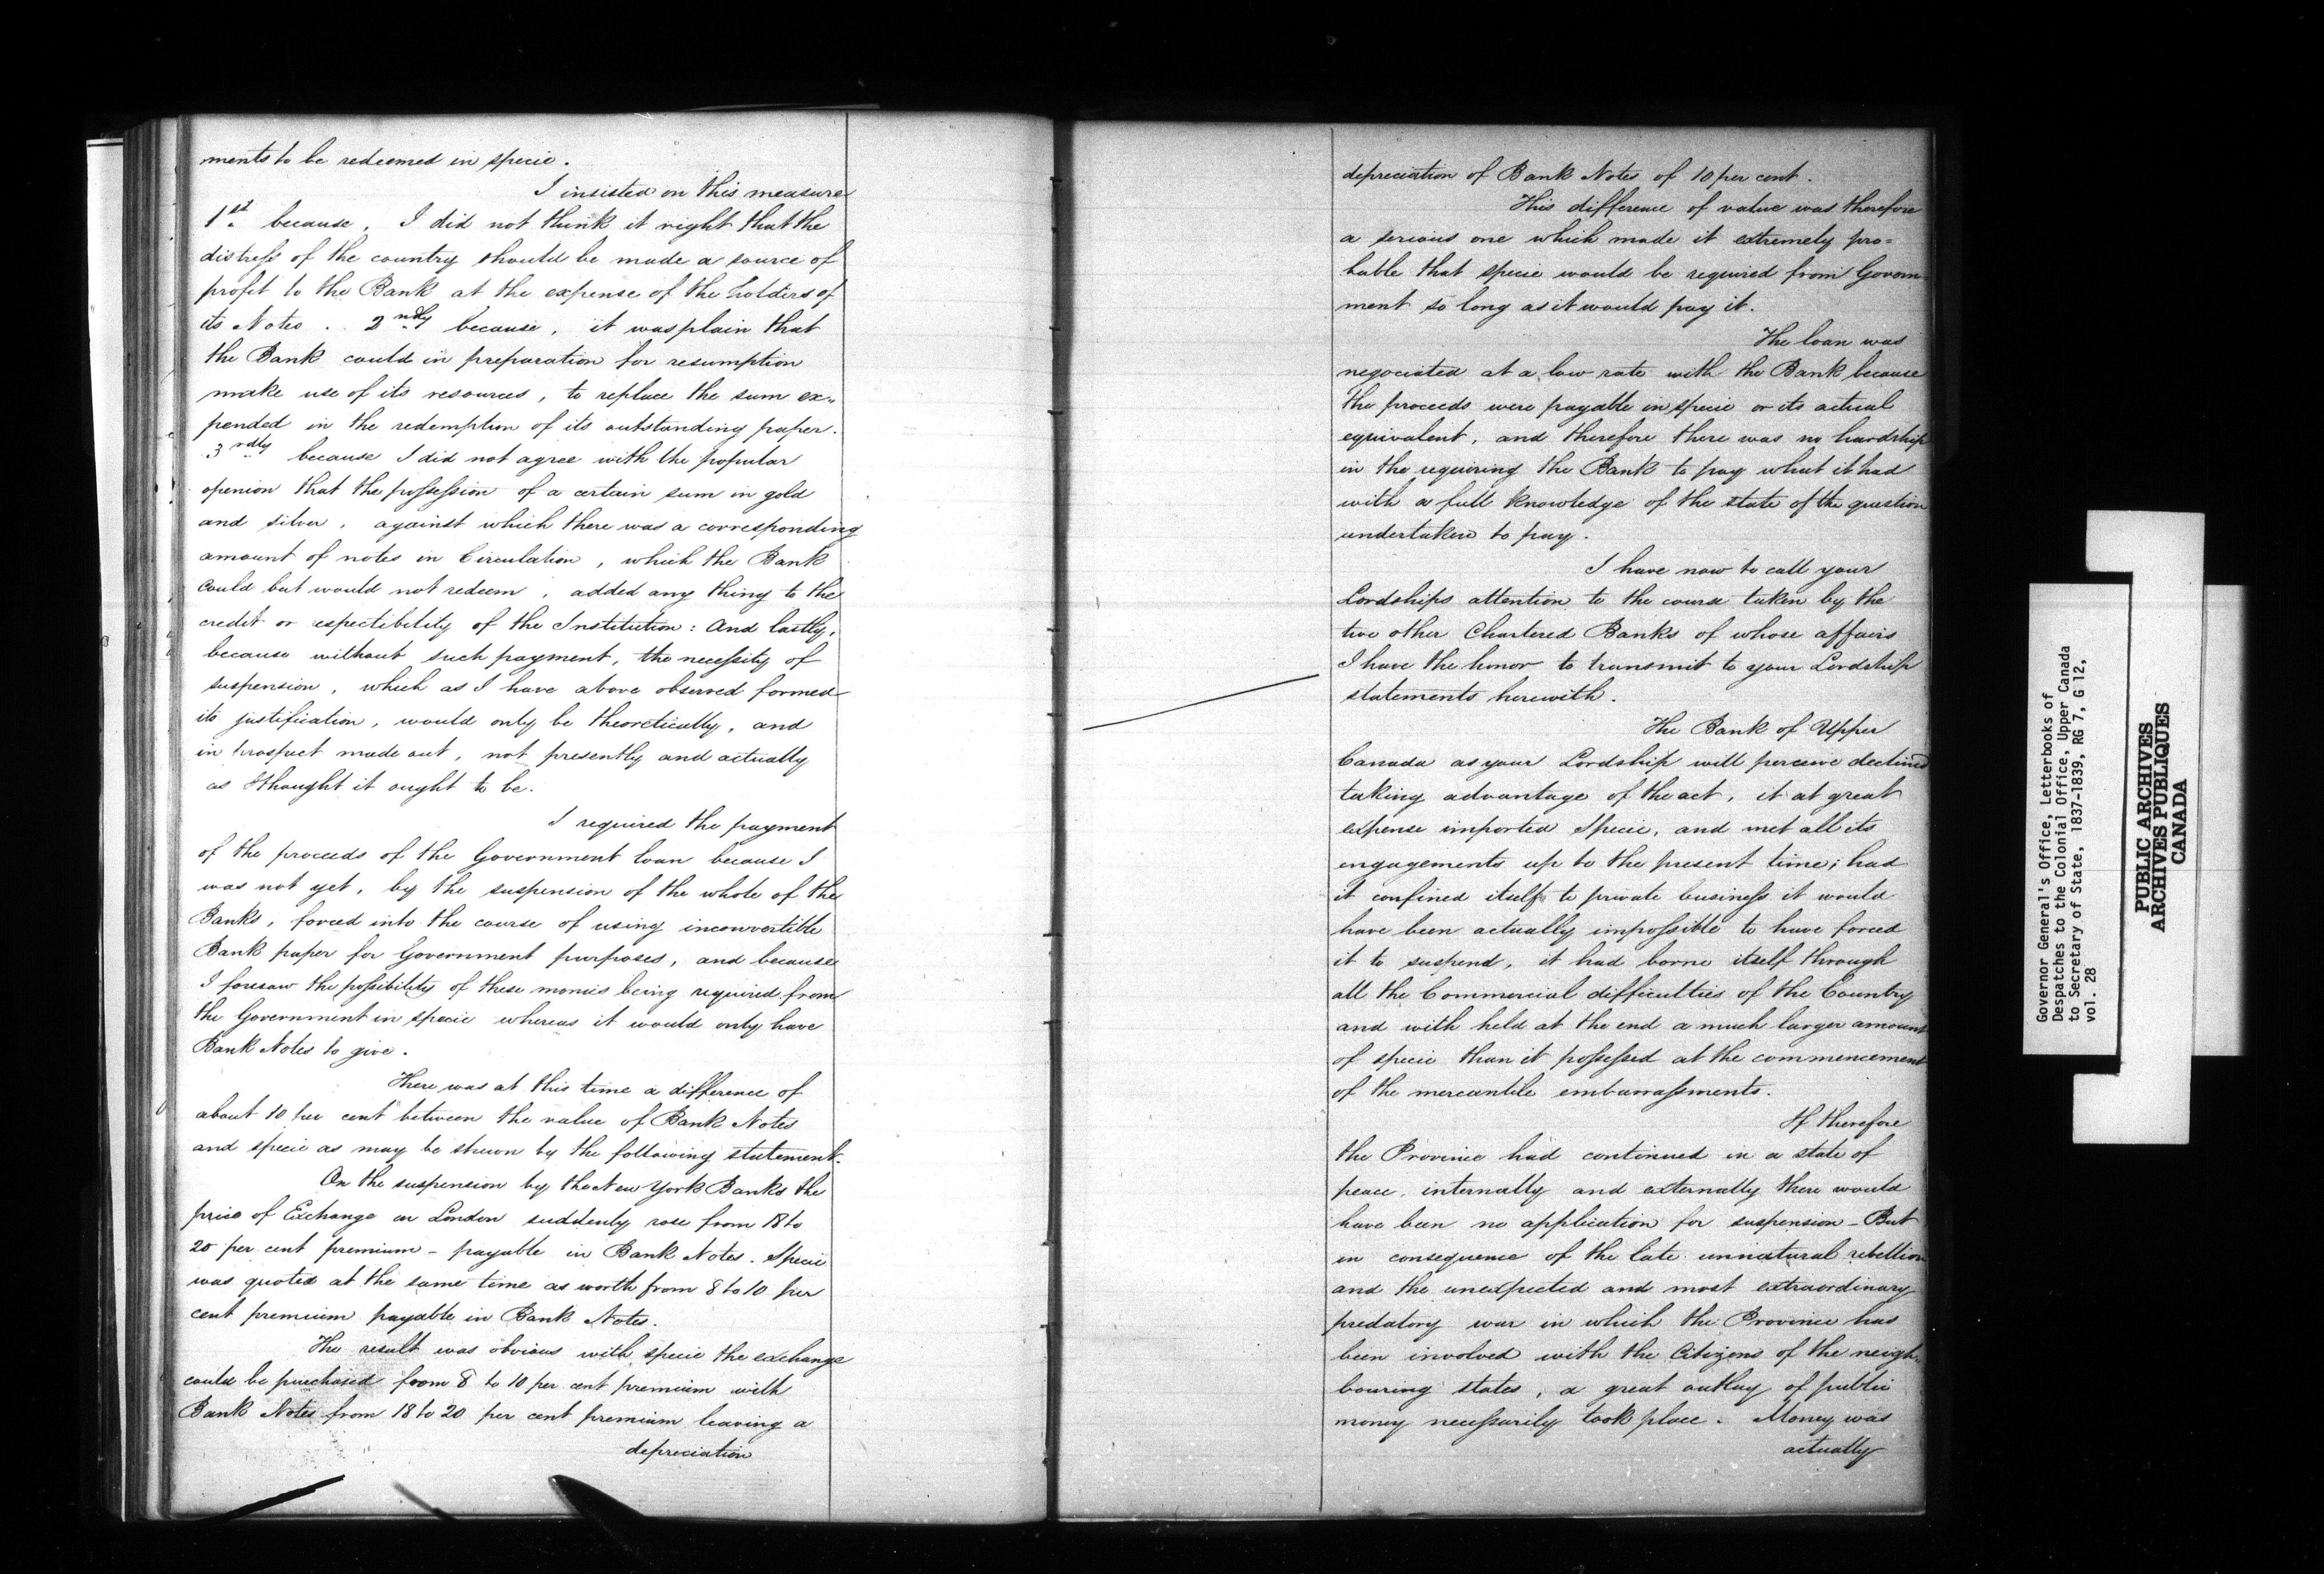 ments to be redeemed in specie.
I insisted on this measure
1st because, I did not think it right that the
distress of the country should be made a source of
profit to the Bank at the expense of the Holders of
its Notes. 2ndly because, it was plain that
the Bank could in preparation for resumption
make use of its resources, to replace the sum ex„
pended in the redemption of its outstanding paper.
3rdly because I did not agree with the popular
openion that the possession of a certain sum in gold
and silver, against which there was a corresponding
amount of notes in Circulation, which the Bank
could but would not redeem, added any thing to the
credit or espectibility of the Institution: And lastly,
because without such payment, the necessity of
suspension, which as I have above observed formed
its justification, would only be theoretically, and
in prospect made out, not presently and actually
as I thought it ought to be.
I required the payment
of the proceeds of the Government loan because I
was not yet, by the suspension of the whole of the
Banks, forced into the course of using inconvertible
Bank paper for Government purposes, and because
I foresaw the possibility of these monies being required from
the Government in specie whereas it would only have
Bank Notes to give.
There was at this time a difference of
about 10 per cent between the value of Bank Notes
and specie as may be shewn by the following statement.
On the suspension by the New York Banks the
price of Exchange on London suddenly rose from 18 to
20 per cent premium - payable in Bank Notes. Specie
was quoted at the same time as worth from 8 to 10 per
cent premium payable in Bank Notes.
The result was obvious with specie the exchange
could be purchased from 8 to 10 per cent premium with
Bank Notes from 18 to 20 per cent premium leaving a
depreciation
depreciation of Bank Notes of 10 per cent.
This difference of value was therefore
a serious one which made it extremely pro=
bable that specie would be required from Govern
ment so long as it would pay it.
The loan was
negociated at a low rate with the Bank because
the proceeds were payable in specie or its actual
equivalent, and therefore there was no hardship
in the requiring the Bank to pay what it had
with a full knowledge of the state of the question
undertaken to pay.
I have now to call your
Lordships attention to the course taken by the
two other Chartered Banks of whose affairs
I have the honor to transmit to your Lordship
statements herewith.
The Bank of Upper
Canada as your Lordship will perceive declined
taking advantage of the act, it at great
expense imported Specie, and met all its
engagements up to the present time; had
it confined itself to private business it would
have been actually impossible to have forced
it to suspend, it had borne itself through
all the Commercial difficulties of the Country
and with held at the end a much larger amount
of specie than it possessed at the commencement
of the mercantile embarrassments.
If therefore
the Province had continued in a state of
peace, internally and externally there would
have been no application for suspension - But
in consequence of the late unnatural rebellion
and the unexpected and most extraordinary
predatory war in which the Province has
been involved with the Citizens of the neigh-
bouring states, a great outlay of public
money necessarily took place. Money was
actually
Governor General's Office, Letterbooks of
Despatches to the Colonial Office, Upper Canada
to Secretary of State, 1837-1839, RG 7, G 12,
vol. 28
PUBLIC ARCHIVES
ARCHIVES PUBLIQUES
CANADA